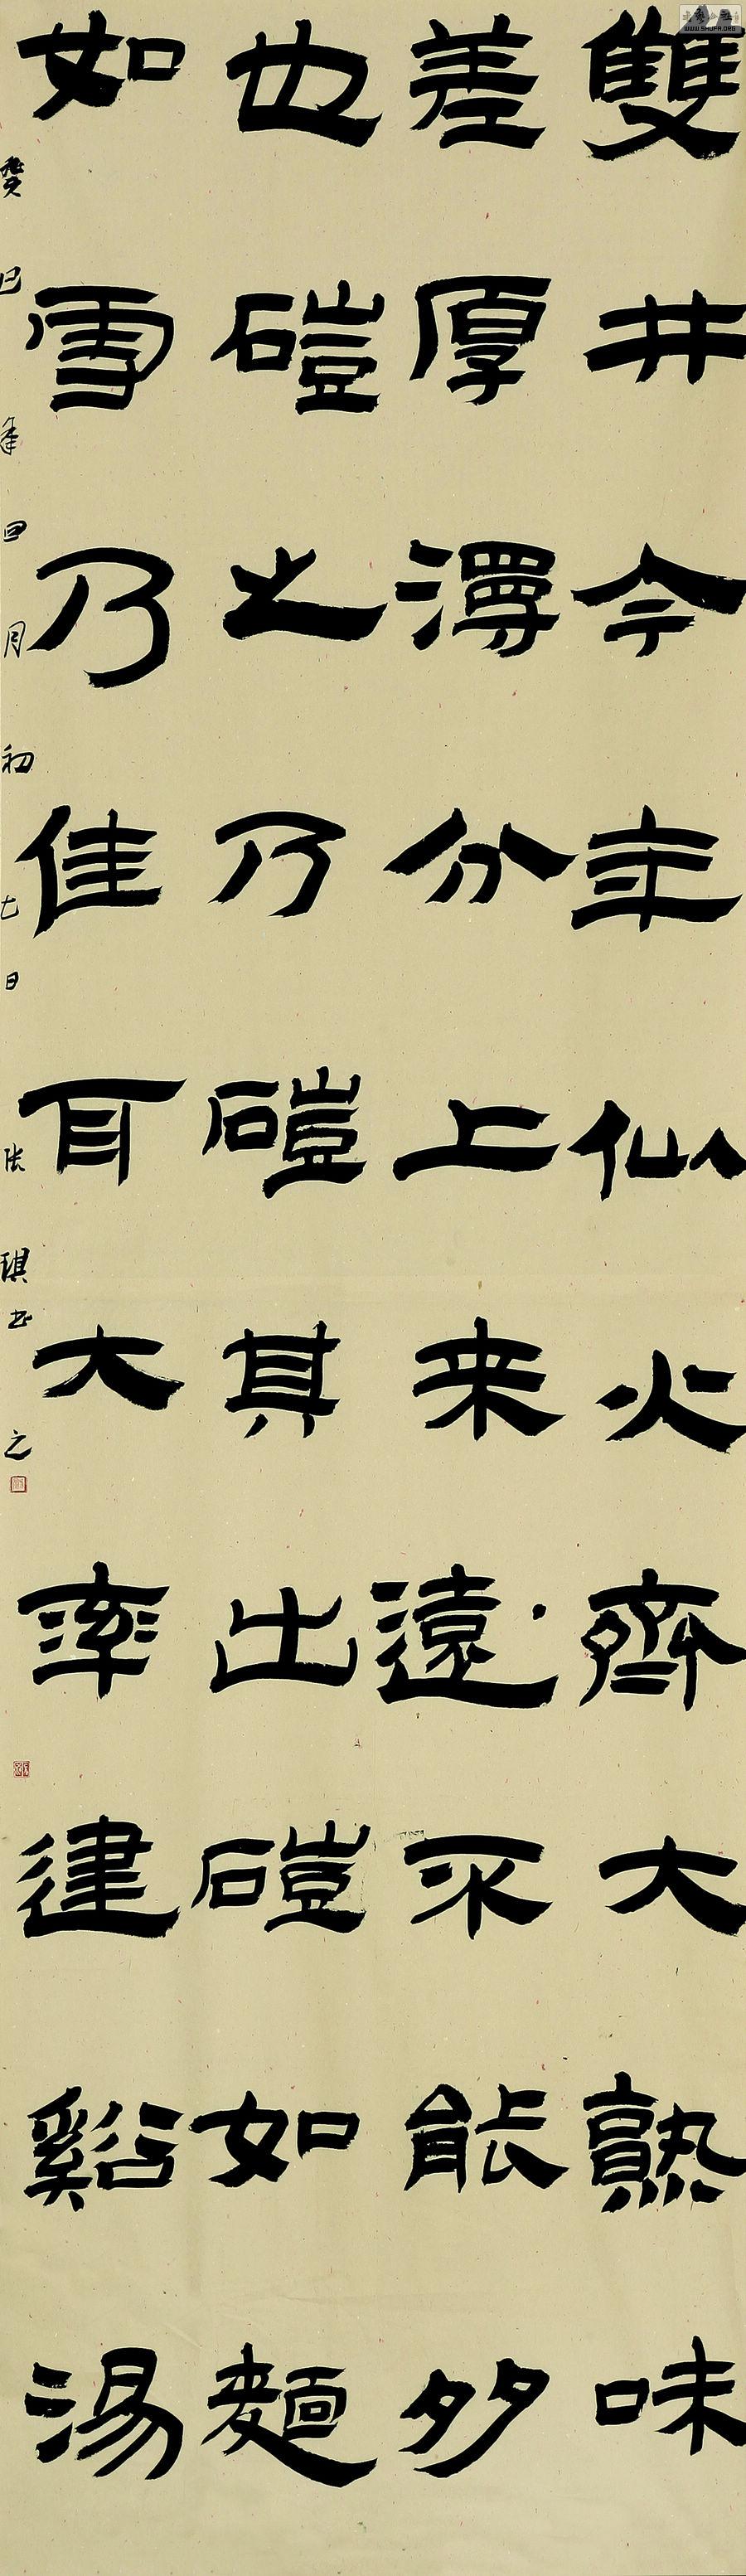 雙井今年似火齊大熟味
差厚漫分上来遠不能多
也磑之乃磑其出磑如麵
如雪乃佳耳大率建谿湯
癸巳年四月初七日張琪書之
WWW.SHUFA.ORG